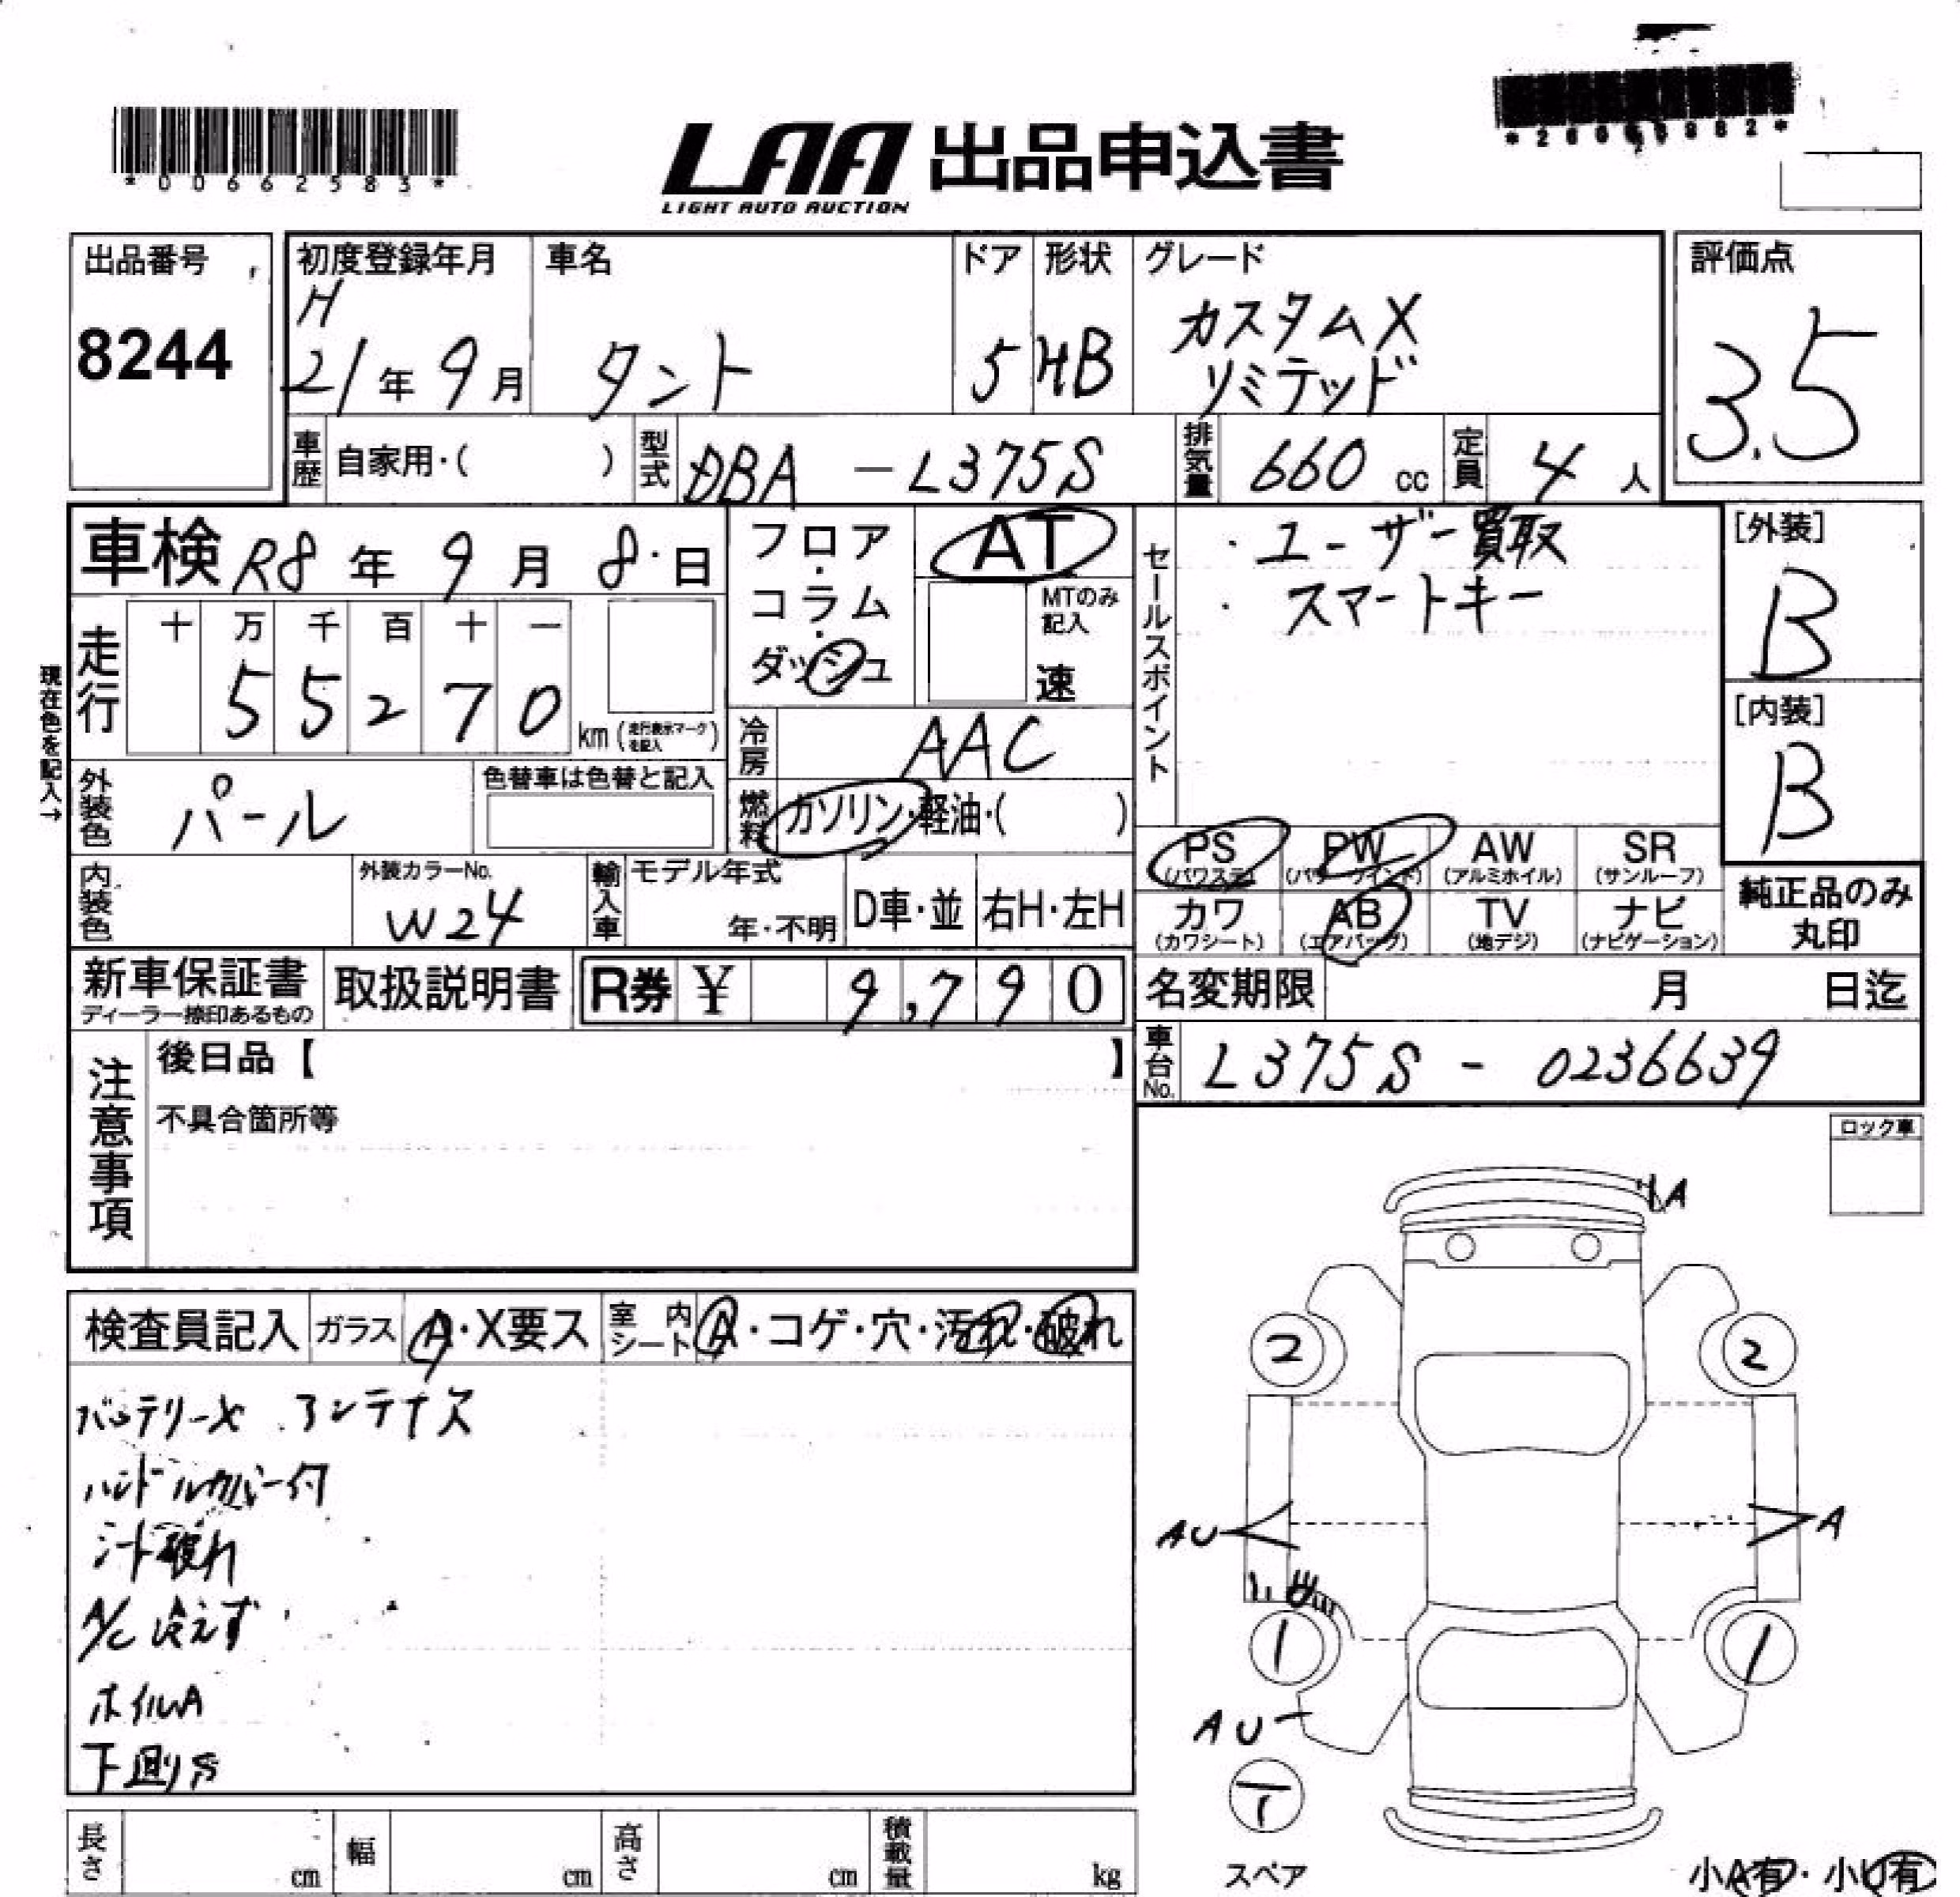 *00662583*
LAA 出品申込書
LIGHT AUTO AUCTION
出品番号
8244
初度登録年月
H
21年9月
車名
タント
ドア
5
形状
HB
グレード
カスタムX
リミテッド
評価点
3.5
車歴 自家用・( )
型式 DBA-L375S
排気量 660 cc
定員 4人
車検 R8年9月8日
フロア・コラム・ダッシュ
AT
MTのみ記入
速
セールスポイント
・ユーザー買取
・スマートキー
[外装]
B
[内装]
B
現在色を記入→
走行
十 万 千 百 十 一
5 5 2 7 0
km(走行表示マークを記入)
冷房 AAC
外装色 パール
色替車は色替と記入
燃料 ガソリン・軽油・( )
PS (パワステ)
PW (パワーウインド)
AW (アルミホイル)
SR (サンルーフ)
カワ (カワシート)
AB (エアバッグ)
TV (地デジ)
ナビ (ナビゲーション)
純正品のみ
丸印
内装色
外装カラーNo.
W24
輸入車
モデル年式
年・不明
D車・並
右H・左H
新車保証書
ディーラー捺印あるもの
取扱説明書
R券 ¥ 9,790
名変期限 月 日迄
車台No. L375S-0236639
注意事項
後日品【 】
不具合箇所等
ロック車
検査員記入
ガラス A・X要ス
室内シート A・コゲ・穴・汚れ・破れ
バッテリーX
ハンドルカバー付
シート破れ
A/C 冷えず
ホイルA
下廻りS
A
2
2
AU
A
1
1
AU
1
スペア
小A有・小U有
長さ cm
幅 cm
高さ cm
積載量 kg